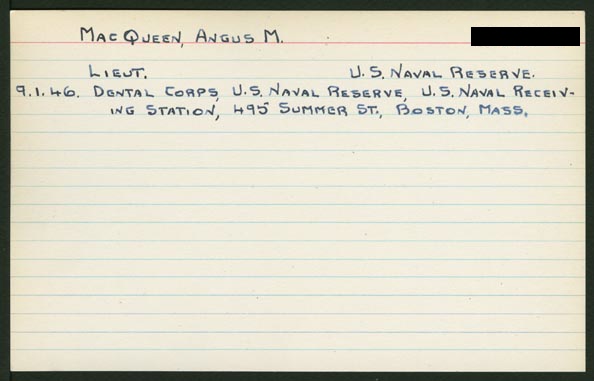 MacQueen, Angus M.
Lieut. U.S. Naval Reserve.
9.1.46. Dental Corps, U.S. Naval Reserve, U.S. Naval Receiv-
ing Station, 495 Summer St., Boston, Mass.